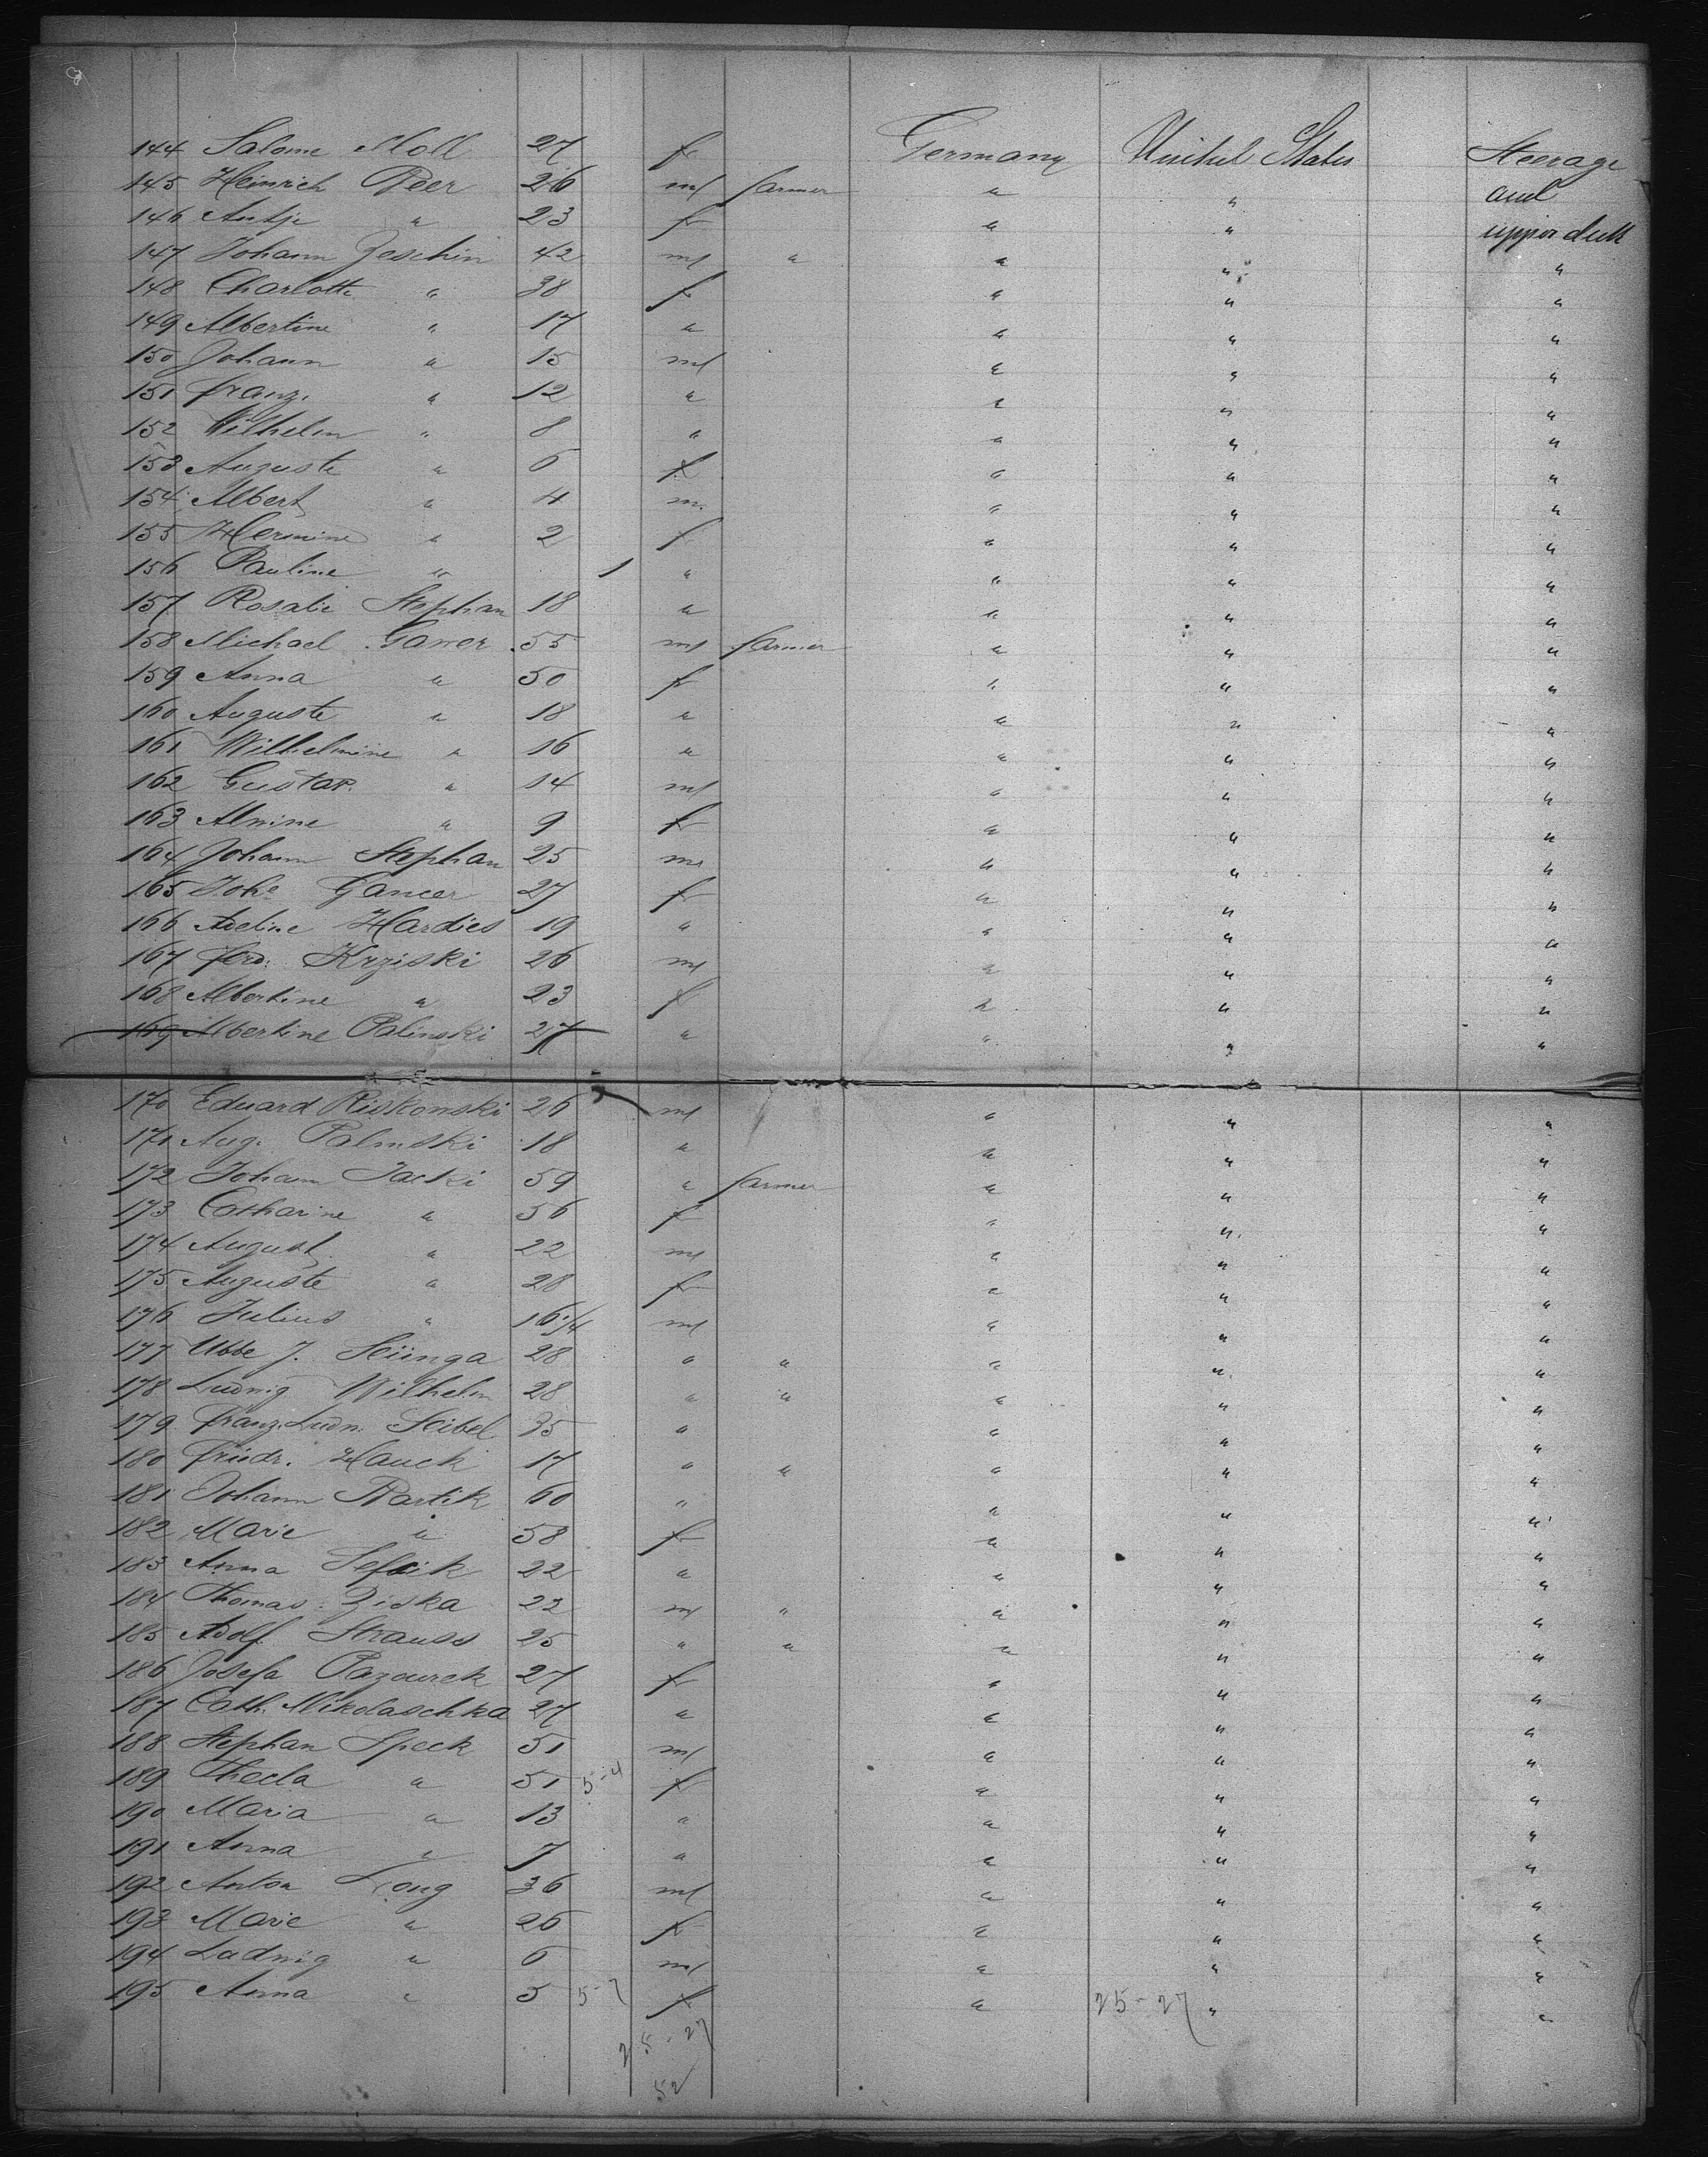 144 Salome Moll 27 f Germany United States Steerage
145 Heinrich Peer 26 m farmer " " and
146 Antje " 23 f " " upper deck
147 Johann Zeschin 42 m " " " "
148 Charlotte " 38 f " " "
149 Albertine " 17 " " " "
150 Johann " 15 m " " "
151 Franz " 12 " " " "
152 Wilhelm " 8 " " " "
153 Auguste " 6 f " " "
154 Albert " 4 m. " " "
155 Hermine " 2 f " " "
156 Pauline " 1 " " " "
157 Rosalie Stephan 18 " " " "
158 Michael Gawer 55 m farmer " " "
159 Anna " 50 f " " "
160 Auguste " 18 " " " "
161 Wilhelmine " 16 " " " "
162 Gustav " 14 m " " "
163 Alwine " 9 f " " "
164 Johann Stephan 25 m " " "
165 Johe Gancer 27 f " " "
166 Adeline Hardies 19 " " " "
167 Ferd. Krziski 26 m " " "
168 Albertine " 23 f " " "
169 Albertine Palinski 27 " " " "
170 Eduard Riskowski 26 m " " "
171 Aug. Palinski 18 " " " "
172 Johann Jacki 59 " farmer " " "
173 Catharine " 56 f " " "
174 August " 22 m " " "
175 Auguste " 28 f " " "
176 Julius " 16 1/4 m " " "
177 Ubbe J. 28 " " " " "
178 Ludwig Wilhelm 28 " " " " "
179 Franz Ludw. Seibel 35 " " " "
180 Friedr. Hauck 17 " " " " "
181 Johann Bartik 60 " " " "
182 Marie " 58 f " " "
183 Anna Sefcik 22 " " " "
184 Thomas Ziska 22 m " " " "
185 Adolf Strauss 25 " " " " "
186 Josefa Pazourek 27 f " " "
187 Cath. Mikolaschka 27 " " " "
188 Stephan Speck 51 m " " "
189 Thecla " 51 5-4 f " " "
190 Maria " 13 " " " "
191 Anna " 7 " " " "
192 Anton Long 36 m " " "
193 Marie " 26 f " " "
194 Ludwig " 6 m " " "
195 Anna " 5 5-7 f " 25-27 " "
25-27
52